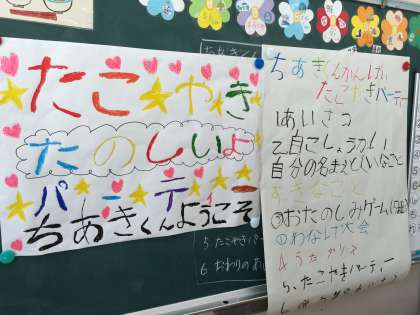 たこ やき
たのしいよ
パーティー
ちあきくんようこそ
ちあきくんかんげい
たこやきパーティー
1あいさつ
2自こしょうかい
自分の名まえといいなこと
すきなこと
3おたのしみゲーム
①わなげ大会
4うた
5.たこやきパーティー
5.たこやきパー
6 おわりのあ